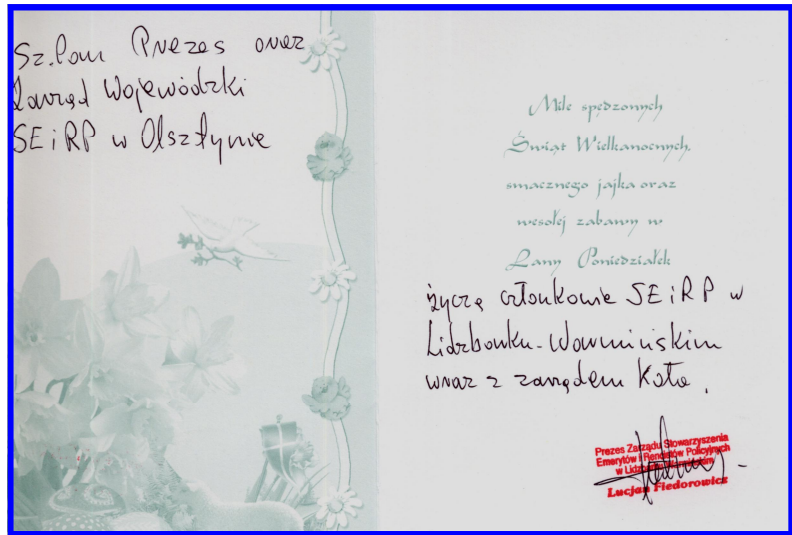 Sz. Pan Prezes oraz
Zarząd Wojewódzki
SEiRP w Olsztynie
Mile spędzonych
Świąt Wielkanocnych,
smacznego jajka oraz
wesołej zabawy w
Lany Poniedziałek
życzą członkowie SEiRP w
Lidzbarku-Warmińskim
wraz z zarządem Koła.
Prezes Zarządu Stowarzyszenia
Emerytów i Rencistów Policyjnych
w Lidzbarku Warmińskim
Lucjan Fiedorowicz